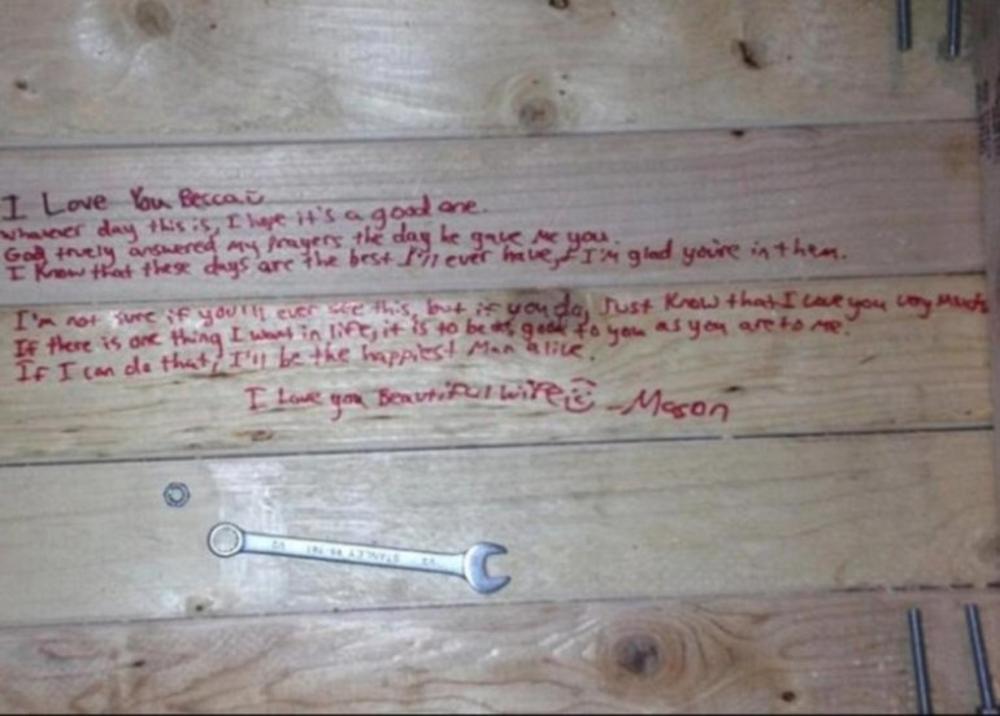 I Love You Becca
whatever day this is, I hope it's a good one.
God truely answered my prayers the day he gave me you.
I know that these days are the best I'll ever have, & I'm glad you're in them.
I'm not sure if you'll ever see this, but if you do, Just Know that I Love you very much
If there is one thing I want in life, it is to be as good to you as you are to me.
If I can do that, I'll be the happiest Man alive.
I Love you Beautiful Wife -Mason
STANLEY